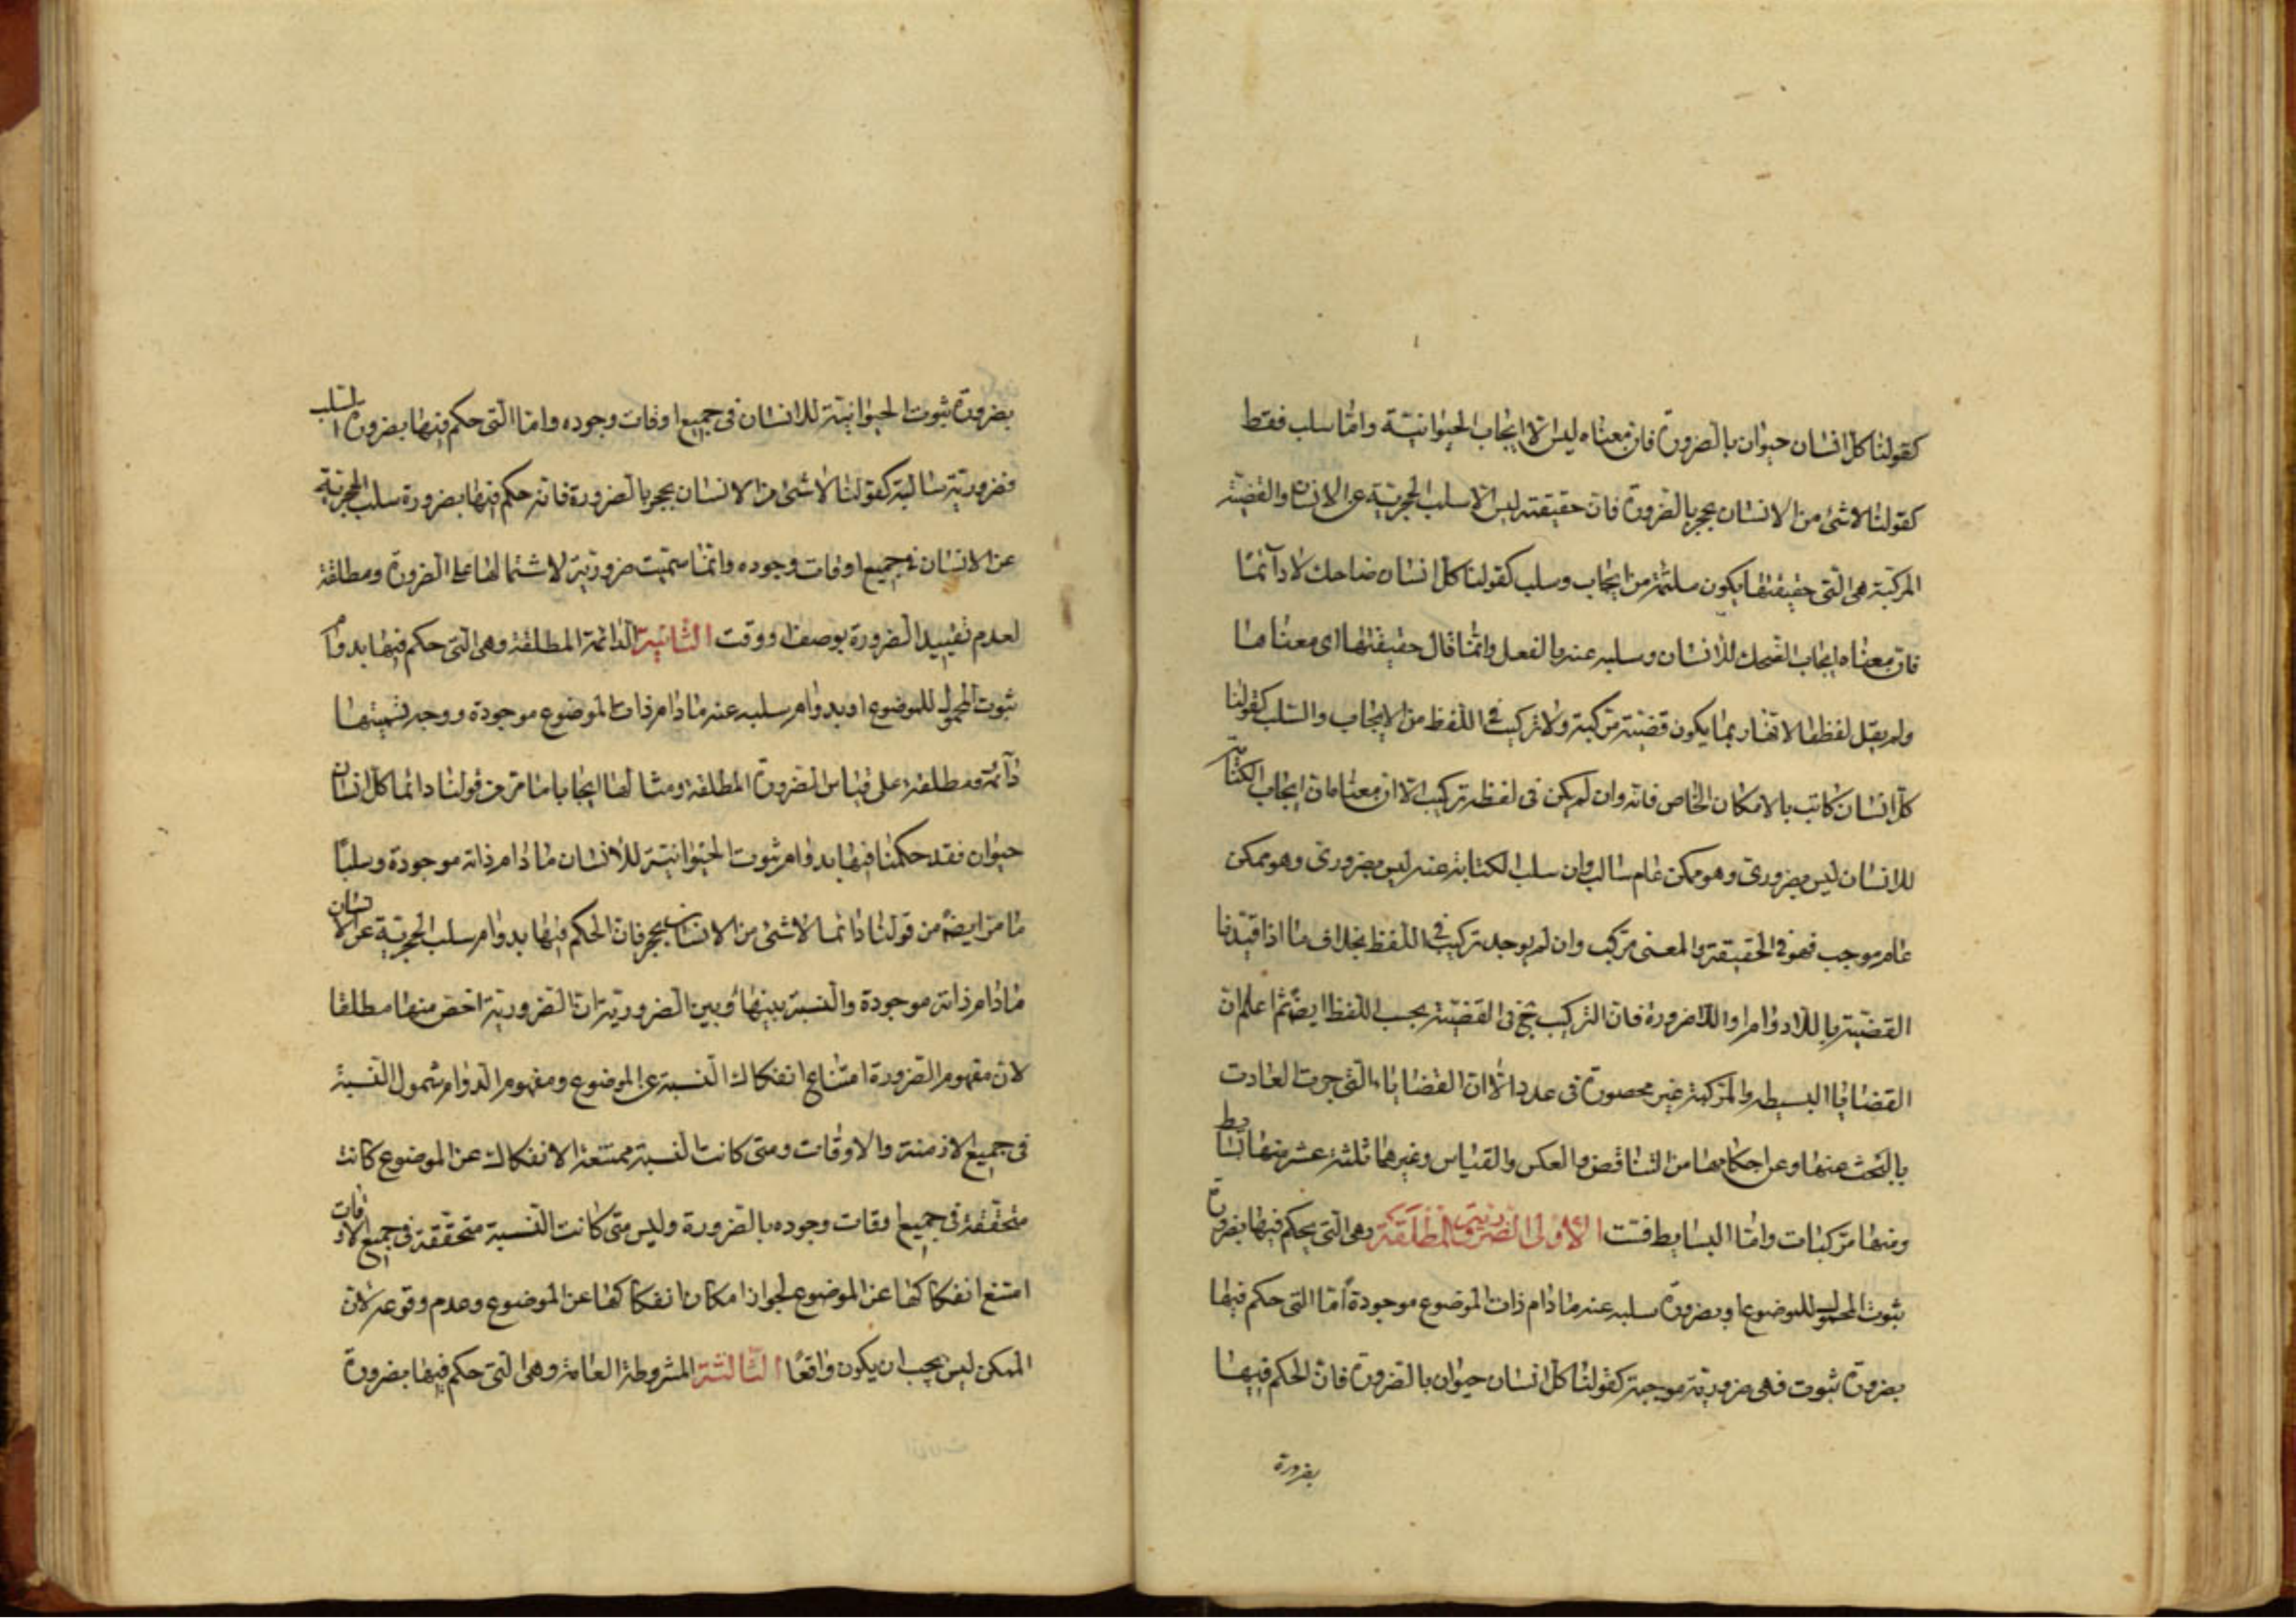 كقولنا كل انسان حيوان بالضرورة فان معناه ليس الا ايجاب الحيوانية واما سلب فقط
كقولنا لا شئ من الانسان بحجر بالضرورة فان حقيقته ليس الا سلب الحجرية عن الانسان والقضية
المركبة هى التى حقيقتها يكون ملتئمة من ايجاب وسلب كقولنا كل انسان ضاحك لا دآئما
فان معناه ايجاب الضحك للانسان وسلبه عنه بالفعل وانما قال حقيقتها اى معناها
ولم يقل لفظها لانها ربما يكون قضية مركبة ولا تركيب فى اللفظ من الايجاب والسلب كقولنا
كل انسان كاتب بالامكان الخاص فانه وان لم يكن فى لفظه تركيب الا ان معناه ان ايجاب الكتابة
للانسان ليس بضرورى وهو ممكن عام سالب وان سلب الكتابة عنه ليس بضرورى وهو ممكن
عام موجب فهو فى الحقيقة والمعنى مركب وان لم يوجد تركيب فى اللفظ بخلاف ما اذا قيدنا
القضية باللادوام او اللاضرورة فان التركيب ح فى القضية بحسب اللفظ ايضا ثم اعلم ان
القضايا البسيطه والمركبة غير محصورة فى عدد الا ان القضايا التى جرت العادت
بالبحث عنها وعن احكامها من التناقض والعكس والقياس وغيرها ثلثة عشر منها بسايط
ومنها مركبات واما البسايط فست الاولى الضرورية المطلقة وهى التى يحكم فيها بضرورة
ثبوت المحمول للموضوع او بضرورة سلبه عنه ما دام ذات الموضوع موجودة اما التى حكم فيها
بضرورة ثبوت فهى ضرورية موجبة كقولنا كل انسان حيوان بالضرورة فان الحكم فيها
بضرورة
بضرورة ثبوت الحيوانية للانسان فى جميع اوقات وجوده واما التى حكم فيها بضرورة السلب
فضرورية سالبة كقولنا لا شئ من الانسان بحجر بالضرورة فانه حكم فيها بضرورة سلب الحجرية
عن الانسان فى جميع اوقات وجوده وانما سميت ضرورية لاشتمالها على الضرورة ومطلقة
لعدم تقييد الضرورة بوصف او وقت الثانية الدائمة المطلقة وهى التى حكم فيها بدوام
ثبوت المحمول للموضوع او بدوام سلبه عنه ما دام ذات الموضوع موجودة ووجه تسميتها
دآئمة ومطلقة على قياس الضرورة المطلقة ومثالها ايجابا ما مر من قولنا دائما كل انسان
حيوان فقد حكمنا فيها بدوام ثبوت الحيوانية للانسان ما دام ذاته موجودة وسلبا
ما مر ايضا من قولنا دائما لا شئ من الانسان بحجر فان الحكم فيها بدوام سلب الحجرية عن الانسان
ما دام ذاته موجودة والنسبة بينها وبين الضرورية ان الضرورية اخص منها مطلقا
لان مفهوم الضرورة امتناع انفكاك النسبة عن الموضوع ومفهوم الدوام شمول النسبة
فى جميع الازمنة والاوقات ومتى كانت النسبة ممتنعة الانفكاك عن الموضوع كانت
متحققة فى جميع اوقات وجوده بالضرورة وليس متى كانت النسبة متحققة فى جميع الاوقات
امتنع انفكاكها عن الموضوع لجواز امكان انفكاكها عن الموضوع وعدم وقوعه لان
الممكن ليس يجب ان يكون واقعا الثالثة المشروطة العامة وهى التى حكم فيها بضرورة